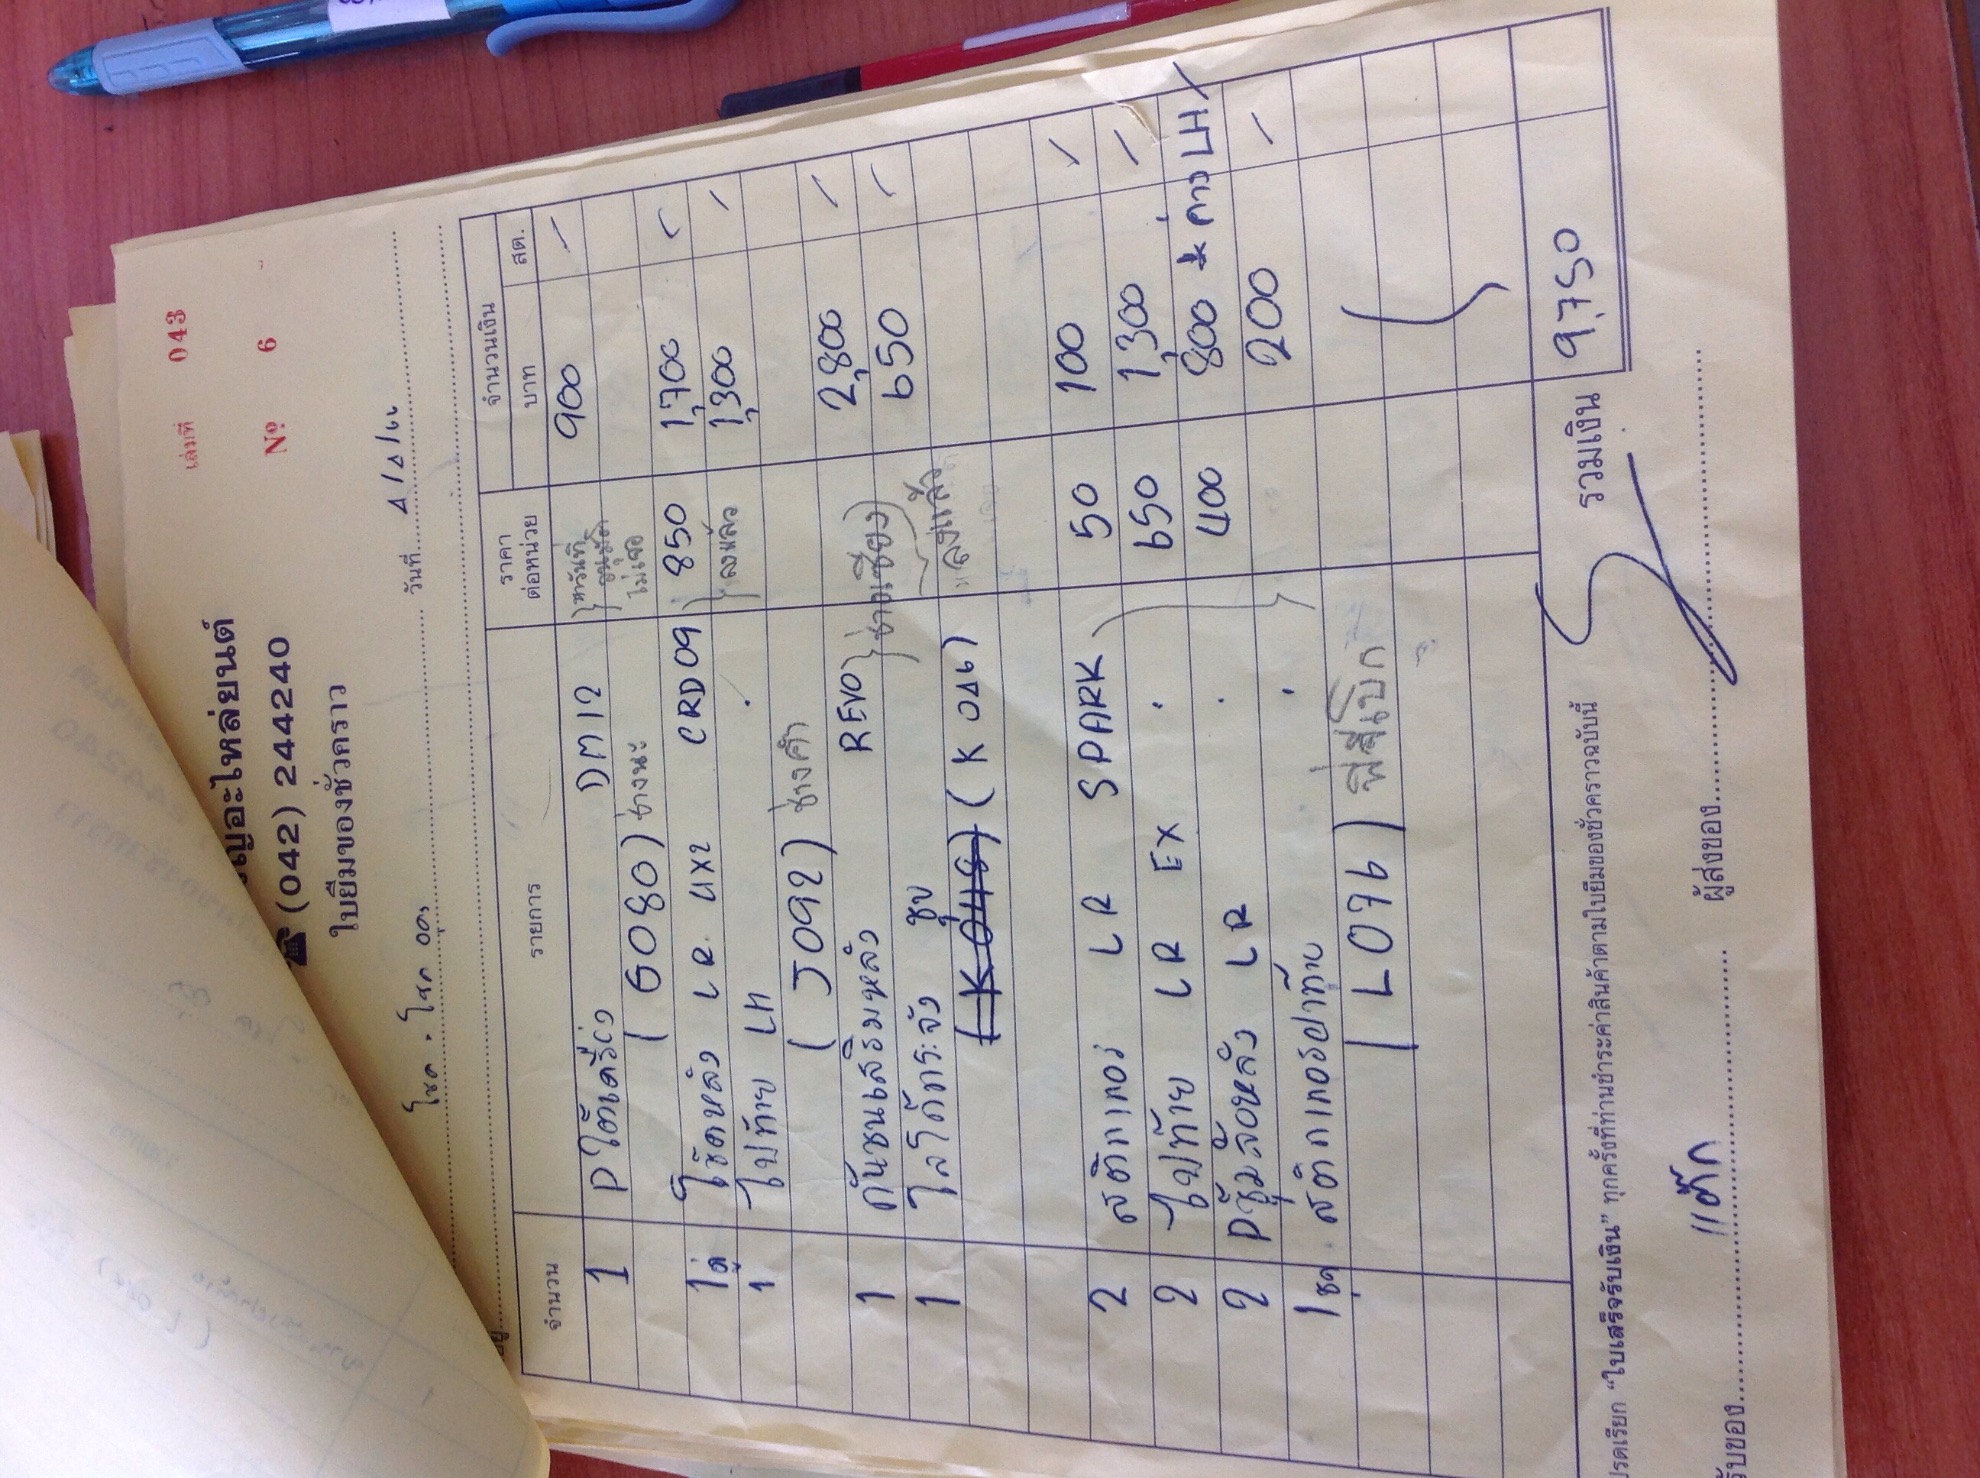 เล่มที่ 043
ญอะไหล่ยนต์
☎ (042) 244240
Nº 6
ใบยืมของชั่วคราว
วันที่ 4/4/66
โชค . โชค อุด.
จำนวน รายการ ราคาต่อหน่วย จำนวนเงิน
บาท สต.
1 Pใต้เครื่อง DM12 900 -
(G080) ช่างนะ ไม่เอา
1คู่ โช๊คหลัง LR 4X2 CRD09 850 1,700 -
1 ไฟท้าย LH . ลงแล้ว 1,300 -
(J092) ช่างคำ
1 กันชนเสริมหลัง REVO 2,800 -
1 โลโก้กระจัง ชุบ 650 -
(K048) (K046) ลงแล้ว
2 สติกเกอร์ LR SPARK 50 100 -
2 ไฟท้าย LR EX . 650 1,300 -
2 Pซุ้มล้อหลัง LR . 400 800 * ค้าง LH
1ชุด สติกเกอร์ฝาท้าย . 200 -
(L076)
รวมเงิน 9,750
ปรดเรียก "ใบเสร็จรับเงิน" ทุกครั้งที่ท่านชำระค่าสินค้าตามใบยืมของชั่วคราวฉบับนี้
รับของ แต๊ก ผู้ส่งของ